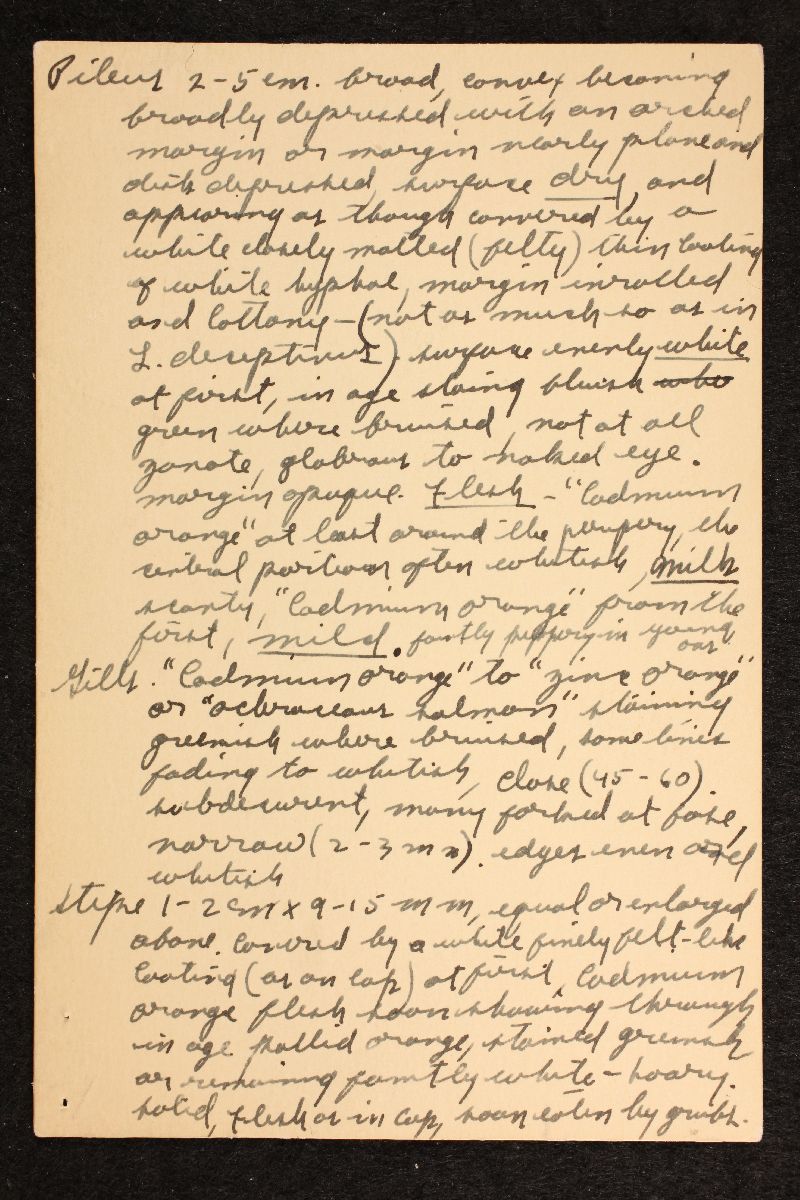 Pileus 2-5 cm. broad, convex becoming
broadly depressed with an arched
margin or margin nearly plane and
disk depressed, surface dry, and
appearing as though convered by a
white closely matted (felty) thin coating
of white hyphae, margin inrolled
and cottony - (not as much so as in
L. deceptivus). surface evenly white
at first, in age staing bluish whe
green where bruised, not at all
zonate, glabrous to naked eye.
margin opaque. Flesh - "Cadmium
orange" at least around the periphery, the
central portion often whitish, milk
scanty, "Cadmium orange" from the
first, mild. faintly peppery in young
Gills. "Cadmium orange" to "zinc orange"
or "ochraceous salmon" staining
greenish where bruised, sometimes
fading to whitish, close (45-60).
subdecurrent, many forked at base,
narrow (2-3 mm). edges even and
whitish
Stipe 1-2 cm x 9-15 mm, equal or enlarged
above. Covered by a white finely felt-like
coating (as on cap) at first, Cadmium
orange flesh soon showing through
in age pallid orange, stained greenish
or remaining faintly white-hoary.
solid, flesh as in cap, soon eaten by grubs.